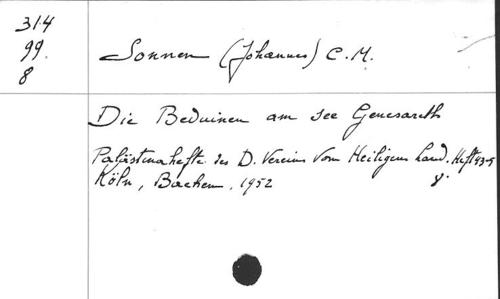 314
99.
8
Sonnen (Johannes) C.M.
Die Beduinen am See Genesareth
Palästinahefte des D. Vereins vom Heiligen Land. Heft 43-5
Köln, Bachem, 1952 8°